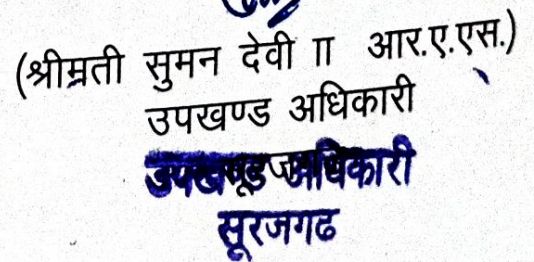 (श्रीमती सुमन देवी II आर.ए.एस.)
उपखण्ड अधिकारी
उपखण्ड अधिकारी
सूरजगढ